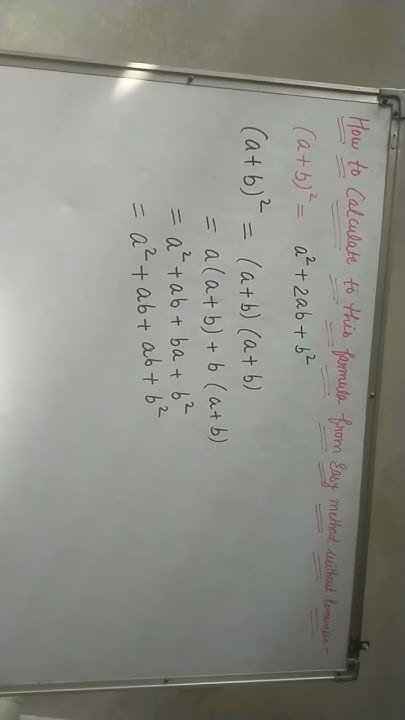 How to Calculate to this formula from Easy method without Remember-
(a+b)² = a²+2ab+b²
(a+b)² = (a+b)(a+b)
= a(a+b)+b(a+b)
= a²+ab+ba+b²
= a²+ab+ab+b²